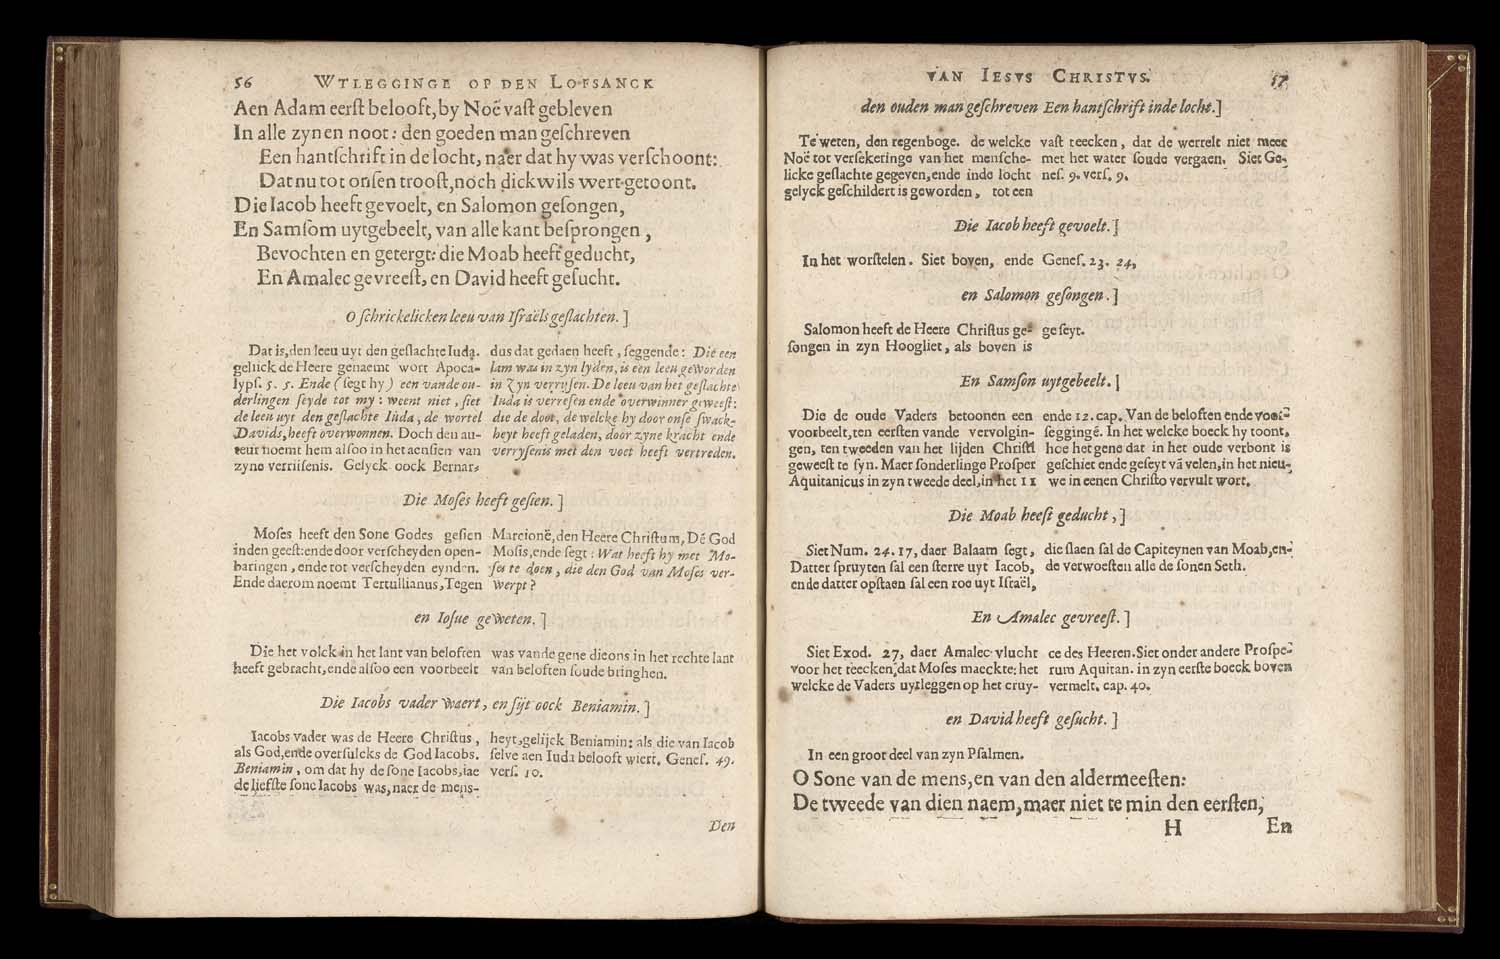 56 WTLEGGINGE OP DEN LOFSANCK
Aen Adam eerſt belooft, by Noë vaſt gebleven
In alle zynen noot: den goeden man geſchreven
Een hantſchrift in de locht, naer dat hy was verſchoont:
Dat nu tot onſen trooſt, noch dickwils wert getoont.
Die Iacob heeft gevoelt, en Salomon geſongen,
En Samſom uytgebeelt, van alle kant beſprongen,
Bevochten en getergt: die Moab heeft geducht,
En Amalec gevreeſt, en David heeft geſucht.
O ſchrickelicken leeu van Iſraëls geſlachten.]
Dat is, den leeu uyt den geſlachte Iuda.
geliick de Heere genaemt wort Apoca-
lypſ. 5. 5. Ende (ſegt hy) een vande ou-
derlingen ſeyde tot my: weent niet, ſiet
de leeu uyt den geſlachte Iuda, de wortel
Davids, heeft overwonnen. Doch den au-
teur noemt hem alſoo in het aenſien van
zyne verriiſenis. Gelyck oock Bernar-
dus dat gedaen heeft, ſeggende: Die een
lam was in zyn lyden, is een leeu geworden
in zyn verryſen. De leeu van het geſlachte
Iuda is verreſen ende overwinner geweeſt:
die de doot, de welcke hy door onſe ſwack-
heyt heeft geladen, door zyne kracht ende
verryſenis met den voet heeft vertreden.
Die Moſes heeft geſien.]
Moſes heeft den Sone Godes geſien
inden geeſt: ende door verſcheyden open-
baringen, ende tot verſcheyden eynden.
Ende daerom noemt Tertullianus, Tegen
Marcionē, den Heere Chriſtum, Dē God
Moſis, ende ſegt: Wat heeft hy met Mo-
ſes te doen, die den God van Moſes ver-
werpt?
en Ioſue geweten.]
Die het volck in het lant van beloften
heeft gebracht, ende alſoo een voorbeelt
was vande gene die ons in het rechte lant
van beloften ſoude bringhen.
Die Iacobs vader waert, en ſijt oock Beniamin.]
Iacobs vader was de Heere Chriſtus,
als God, ende overſulcks de God Iacobs.
Beniamin, om dat hy de ſone Iacobs, iae
de liefſte ſone Iacobs was, naer de mens-
heyt, gelijck Beniamin: als die van Iacob
ſelve aen Iuda belooft wiert. Geneſ. 49.
verſ. 10.
Den
VAN IESVS CHRISTVS. 57
den ouden man geſchreven Een hantſchrift inde locht.]
Te weten, den regenboge. de welcke
Noë tot verſekeringe van het menſche-
licke geſlachte gegeven, ende inde locht
gelyck geſchildert is geworden, tot een
vaſt teecken, dat de werrelt niet meer
met het water ſoude vergaen. Siet Ge-
neſ. 9. verſ. 9.
Die Iacob heeft gevoelt.]
In het worſtelen. Siet boven, ende Geneſ. 23. 24,
en Salomon geſongen.]
Salomon heeft de Heere Chriſtus ge-
ſongen in zyn Hoogliet, als boven is
geſeyt.
En Samſon uytgebeelt.]
Die de oude Vaders betoonen een
voorbeelt, ten eerſten vande vervolgin-
gen, ten tweeden van het lijden Chriſti
geweeſt te ſyn. Maer ſonderlinge Proſper
Aquitanicus in zyn tweede deel, in het 11
ende 12. cap. Van de beloften ende voor-
ſeggingē. In het welcke boeck hy toont,
hoe het gene dat in het oude verbont is
geſchiet ende geſeyt vā velen, in het nieu-
we in eenen Chriſto vervult wort.
Die Moab heeft geducht,]
Siet Num. 24. 17, daer Balaam ſegt,
Datter ſpruyten ſal een ſterre uyt Iacob,
ende datter opſtaen ſal een roe uyt Iſraël,
die ſlaen ſal de Capiteynen van Moab, en-
de verwoeſten alle de ſonen Seth.
En Amalec gevreeſt.]
Siet Exod. 27, daer Amalec vlucht
voor het teecken, dat Moſes maeckte: het
welcke de Vaders uytleggen op het cruy-
ce des Heeren. Siet onder andere Proſpe-
rum Aquitan. in zyn eerſte boeck boven
vermelt. cap. 40.
en David heeft geſucht.]
In een groot deel van zyn Pſalmen.
O Sone van de mens, en van den aldermeeſten:
De tweede van dien naem, maer niet te min den eerſten,
H En